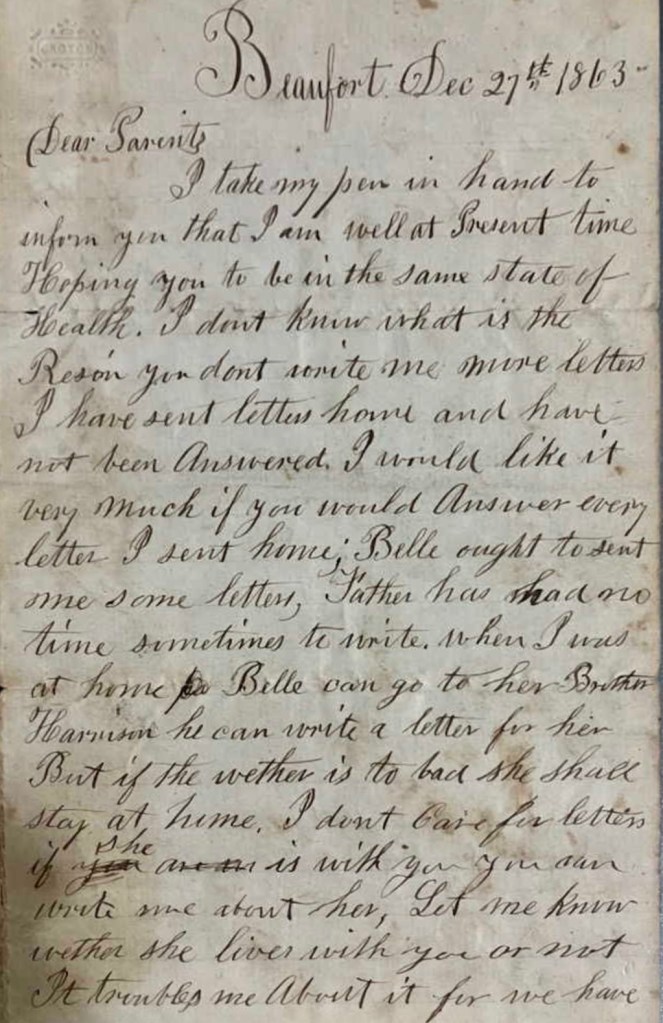 Beaufort. Dec 27th 1863
Dear Parents
I take my pen in hand to
inform you that I am well at Present time
Hoping you to be in the same state of
Health. I dont know what is the
Reson you dont write me more letters
I have sent letters home and have
not been Answered. I would like it
very much if you would Answer every
letter I sent home; Belle ought to sent
me some letters, Father has had no
time sometimes to write. when I was
at home Belle can go to her Brother
Harrison he can write a letter for her
But if the wether is to bad she shall
stay at home. I dont Care for letters
if she is with you you can
write me about her, Let me know
wether she lives with you or not
It troubles me About it for we have